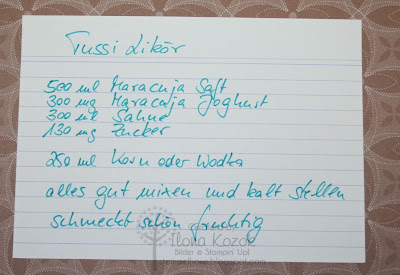 Tussi Likör
500 ml Maracuja Saft
300 mg Maracuja Joghurt
300 ml Sahne
130 mg Zucker
250 ml Korn oder Wodka
alles gut mixen und kalt stellen
schmeckt schön fruchtig
Ilona Kozok
Bilder © Stampin' Up!